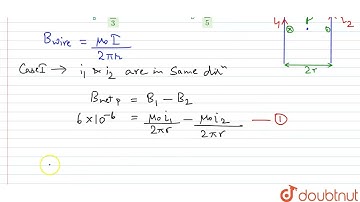 5 5
i₁ P i₂
B wire = μ₀ I / 2πr
2r
Case I → i₁ & i₂ are in same dirⁿ
B net p = B₁ - B₂
6 × 10⁻⁶ = μ₀ i₁ / 2πr - μ₀ i₂ / 2πr — ①
doubtnut